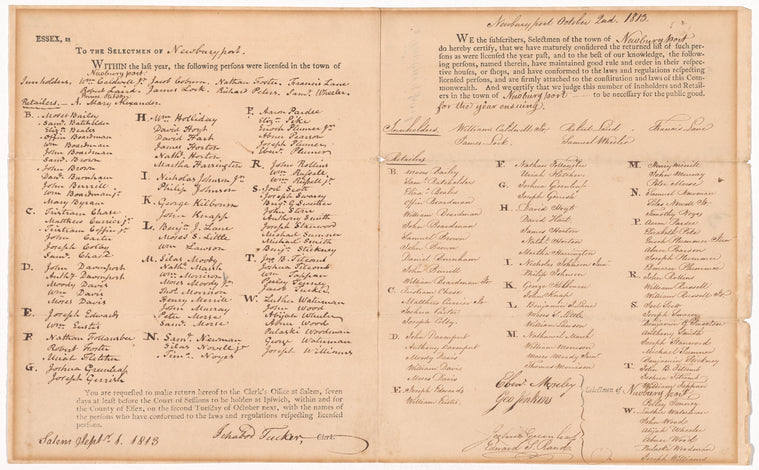 ESSEX, ss
To the Selectmen of Newburyport.
WITHIN the last year, the following persons were licensed in the town of
Newburyport.
Innholders. Wm. Caldwell Jr. Jacob Coburn. Nathan Foster. Francis Lane
Robert Laird. James Lock. Richard Peters. Saml. Wheeler.
Retailers.— A. Mary Alexander.
B. Moses Bailey
Saml. Batchelder
Eliza. Bealer
Offin Boardman
Wm. Boardman
Jno. Boardman
Saml. Brown
John Brown
Danl. Burnham
John Burrill
Wm. Boardman Jr.
Mary Byram
C. Tristram Chase
Matthews Currier Jr.
Tristram Coffin Jr.
John Carter
Joseph Corliss
Saml. Chase
D. John Davenport
Anthy. Davenport
Moody Davis
Wm. Davis
Moses Davis
E. Joseph Edwards
Wm. Eustis
F. Nathan Follansbee
Robert Foster
Uriah Fletcher
G. Joshua Greenleaf
Joseph Gerrish
H. Wm. Holliday
David Hoyt
David Hart
James Horton
Nathl. Horton
Martha Harrington
I. Nicholas Johnson Jr.
Philip Johnson
K. George Kilborn
John Knapp
L. Benj. J. Lane
Moses S. Little
Wm. Lawson
M. Silas Moody
Nathl. Marsh
Wm. Morrison
Moses Moody Jr.
Thos. Morrison
Henry Merrill
John Murray
Peter Morse
Saml. Morse
N. Saml. Newman
Silas Novell Jr.
Timo. Noyes
P. Aaron Pardee
Eliza. Pike
Enoch Plumer Jr.
Abner Pearson
Joseph Plumer
Benj. Plumer
R. John Rollins
Wm. Russell
Wm. Russell Jr.
S. Joel Scott
Joseph Swasey
Benj. G. Sweetser
John Stone
Anthony Smith
Joseph Stanwood
Michael Sumner
Michael Smith
Benj. Stickney
T. Jno. B. Titcomb
Joshua Titcomb
Wm. Tappan
Jacob Tucker
W. Luther Waterman
John Wood
Abijah Wheeler
Abner Wood
Pulaski Woodman
George Waterman
Joseph Williams
You are requested to make return hereof to the Clerk's Office at Salem, seven
days at least before the Court of Sessions to be holden at Ipswich, within and for
the County of Essex, on the second Tuesday of October next, with the names of
the persons who have conformed to the laws and regulations respecting licensed
persons.
Salem Septr. 1. 1813
Ichabod Tucker Clerk.
Newburyport October 2nd. 1813.
WE the subscribers, Selectmen of the town of Newburyport
do hereby certify, that we have maturely considered the returned list of such per-
sons as were licensed the year past, and to the best of our knowledge, the follow-
ing persons, named therein, have maintained good rule and order in their respec-
tive houses, or shops, and have conformed to the laws and regulations respecting
licensed persons, and are firmly attached to the constitution and laws of this Com-
monwealth. And we certify that we judge the number of Innholders and Retail-
ers in the town of Newburyport to be necessary for the public good.
for the year ensuing.
Innholders. William Caldwell Jr. Robert Laird Francis Lane
James Lock. Samuel Wheeler
Retailers
B. Moses Bailey
Saml. Batchelder
Offin Boardman
William Boardman
John Boardman
Samuel Brown
John Brown
Daniel Burnham
John Burrill
William Boardman Jr.
C. Tristram Chase
Matthew Currier Jr.
Joshua Carter
D. John Davenport
Anthony Davenport
Moody Davis
William Davis
Moses Davis
E. Joseph Edwards
William Eustis
F. Nathan Follansbee
Uriah Fletcher
G. Joshua Greenleaf
Joseph Gerrish
H. David Hoyt
David Hart
James Horton
Nathl. Horton
Martha Harrington
I. Nicholas Johnson Junr.
Philip Johnson
K. George Kilborn
John Knapp
L. Benjamin J. Lane
Moses S. Little
William Lawson
M. Nathaniel Marsh
William Morrison
Moses Moody Junr.
Thomas Morrison
M. Henry Merrill
John Murray
Peter Morse
N. Samuel Newman
Timothy Noyes
P. Aaron Pardee
Elizabeth Pike
Enoch Plummer Junr.
Abner Pearson
Joseph Plummer
Plummer
R. John Rollins
William Russell
William Russell Jr.
S. Joel Scott
Joseph Swasey
Benjamin G. Sweetser
Anthony Smith
Joseph Stanwood
Michael Sumner
Benjamin Stickney
T. John B. Titcomb
Joshua Titcomb
William Tappan
W. Luther Waterman
John Wood
Abijah Wheeler
Abner Wood
Pulaski Woodman
Joseph Williams
Eben Moseley
Geo Jenkins
Joshua Greenleaf
Edward S. Rand
Selectmen of Newburyport